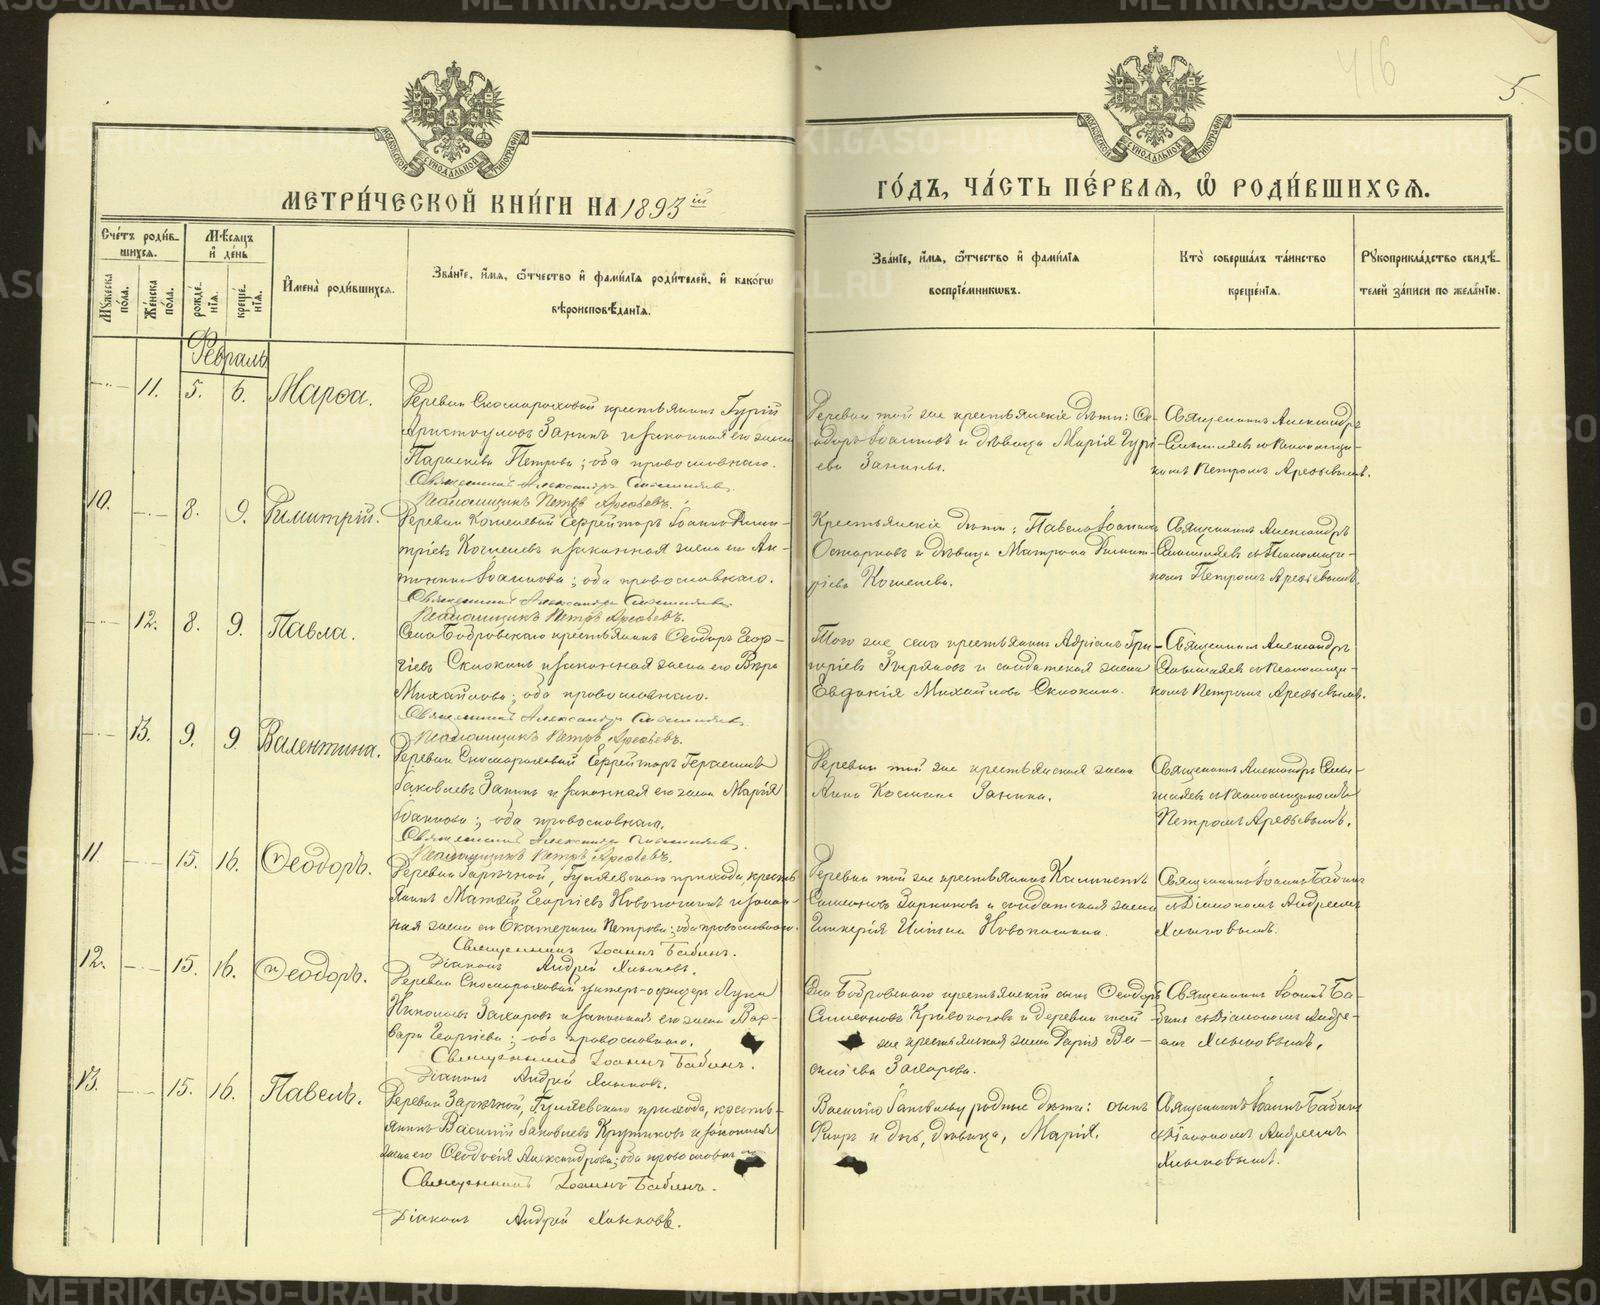 416
5.
МЕТРИ́ЧЕСКОЙ КНИ́ГИ НА 1893 ій
ГО́ДЪ, ЧА́СТЬ ПЕ́РВАѦ, Ѽ РОДИ́ВШИХСѦ.
Счетъ роди́вшихсѧ.
Мужеска пола.
Женска пола.
Мѣсѧцъ и день
рожде́нїѧ.
креще́нїѧ.
Имена̀ роди́вшихсѧ.
Зва́нїе, и́мѧ, ѻ́тчество и фами́лїѧ роди́телей, и како́гѡ
вѣроисповѣ́данїѧ.
Зва́нїе, и́мѧ, ѻ́тчество и фами́лїѧ
воспрїе́мникѡвъ.
Кто̀ соверша́лъ та́инство
креще́нїѧ.
Рукоприкла́дство свидѣ́-
телей за́писи по жела́нїю.
Февраль
11. 5. 6. Марѳа.
Деревни Скомороховой крестьянинъ Гурій
Аристоуловъ Занинъ и законная его жена
Параскева Петрова; оба православнаго.
Священникъ Александръ
Псаломщикъ Петръ Арефьевъ.
Деревни той же крестьянскіе дѣти: Ѳе-
одоръ Іоанновъ и дѣвица Марія Гурі-
ева Занины.
Священникъ Александръ
съ псаломщи-
комъ Петромъ Арефьевымъ.
10. 8. 9. Димитрій.
Деревни Кошелевой Ефрейторъ Іоаннъ Дими-
тріевъ Кошелевъ и законная жена его Ан-
тонина Іоаннова; оба православнаго.
Священникъ Александръ
Псаломщикъ Петръ Арефьевъ.
Крестьянскіе дѣти: Павелъ Іоанновъ
и дѣвица Матрона Димит-
ріева Кошелева.
Священникъ Александръ
съ Псаломщи-
комъ Петромъ Арефьевымъ.
12. 8. 9. Павла.
Села Бобровскаго крестьянинъ Ѳеодоръ Геор-
гіевъ Скокинъ и законная жена его Вѣра
Михайлова; оба православнаго.
Священникъ Александръ
Псаломщикъ Петръ Арефьевъ.
Того же села крестьянинъ Адріанъ Гри-
горіевъ Зыряновъ и солдатская жена
Евдокія Михайлова Скокина.
Священникъ Александръ
съ псаломщи-
комъ Петромъ Арефьевымъ.
13. 9. 9. Валентина.
Деревни Скомороховой Ефрейторъ Герасимъ
Іаковлевъ Занинъ и законная его жена Марія
Іоаннова; оба православнаго.
Священникъ Александръ
Псаломщикъ Петръ Арефьевъ.
Деревни той же крестьянская жена
Анна Космина Занина.
Священникъ Александръ
съ псаломщикомъ
Петромъ Арефьевымъ.
11. 15. 16. Ѳеодоръ.
Деревни Заречной, Гуляевскаго прихода, кресть-
янинъ Матѳей Георгіевъ Новопашинъ и закон-
ная жена его Екатерина Петрова; оба православнаго.
Священникъ Іоаннъ Бабинъ.
Діаконъ Андрей Хлыновъ.
Деревни той же крестьянинъ Климентъ
Симеоновъ и солдатская жена
Гликерія Новопашина.
Священникъ Іоаннъ Бабинъ
съ Діакономъ Андреемъ
Хлыновымъ.
12. 15. 16. Ѳеодоръ.
Деревни Скомороховой унтеръ-офицеръ Лука
Никоновъ Захаровъ и законная его жена Вар-
вара Георгіева; оба православнаго.
Священникъ Іоаннъ Бабинъ.
Діаконъ Андрей Хлыновъ.
Села Бобровскаго крестьянскій сынъ Ѳеодоръ
Симеоновъ Кривоноговъ и деревни той
же крестьянская жена Дарія
Захарова.
Священникъ Іоаннъ Ба-
бинъ съ Діакономъ Андре-
емъ Хлыновымъ.
13. 15. 16. Павелъ.
Деревни Заречной, Гуляевскаго прихода, кресть-
янинъ Василій Іаковлевъ Крутиковъ и законная
жена его Ѳеодосія Александрова; оба православнаго
Священникъ Іоаннъ Бабинъ.
Діаконъ Андрей Хлыновъ.
Василію Іаковлеву родные дѣти: сынъ
и дѣвица, Марія.
Священникъ Іоаннъ Бабинъ
съ Діакономъ Андреемъ
Хлыновымъ.
METRIKI.GASO-URAL.RU